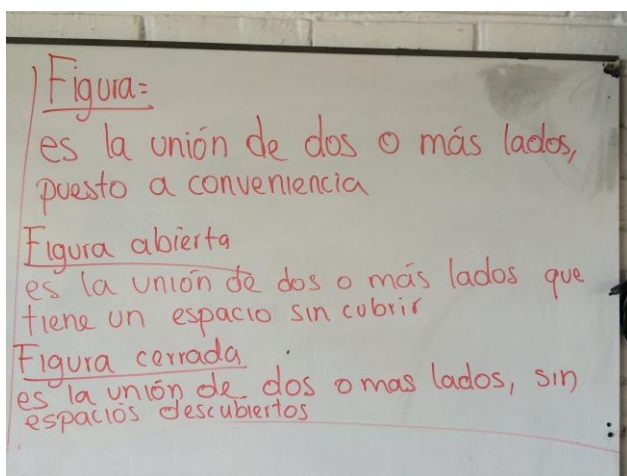 Figura=
es la unión de dos o más lados,
puesto a conveniencia
Figura abierta
es la unión de dos o más lados que
tiene un espacio sin cubrir
Figura cerrada
es la unión de dos o mas lados, sin
espacios descubiertos